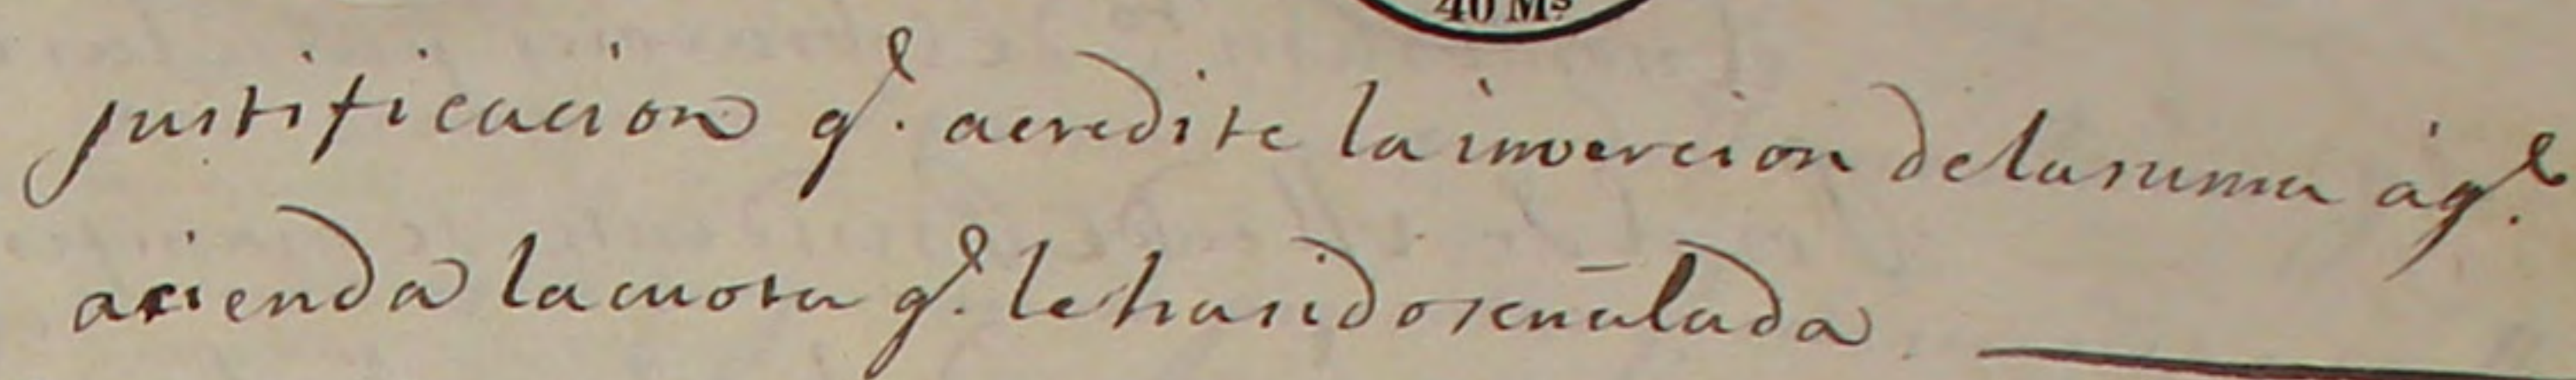 40 Ms
justificacion qe. acredite la invercion de la suma á qe.
acienda la cuota qe. le ha sido señalada